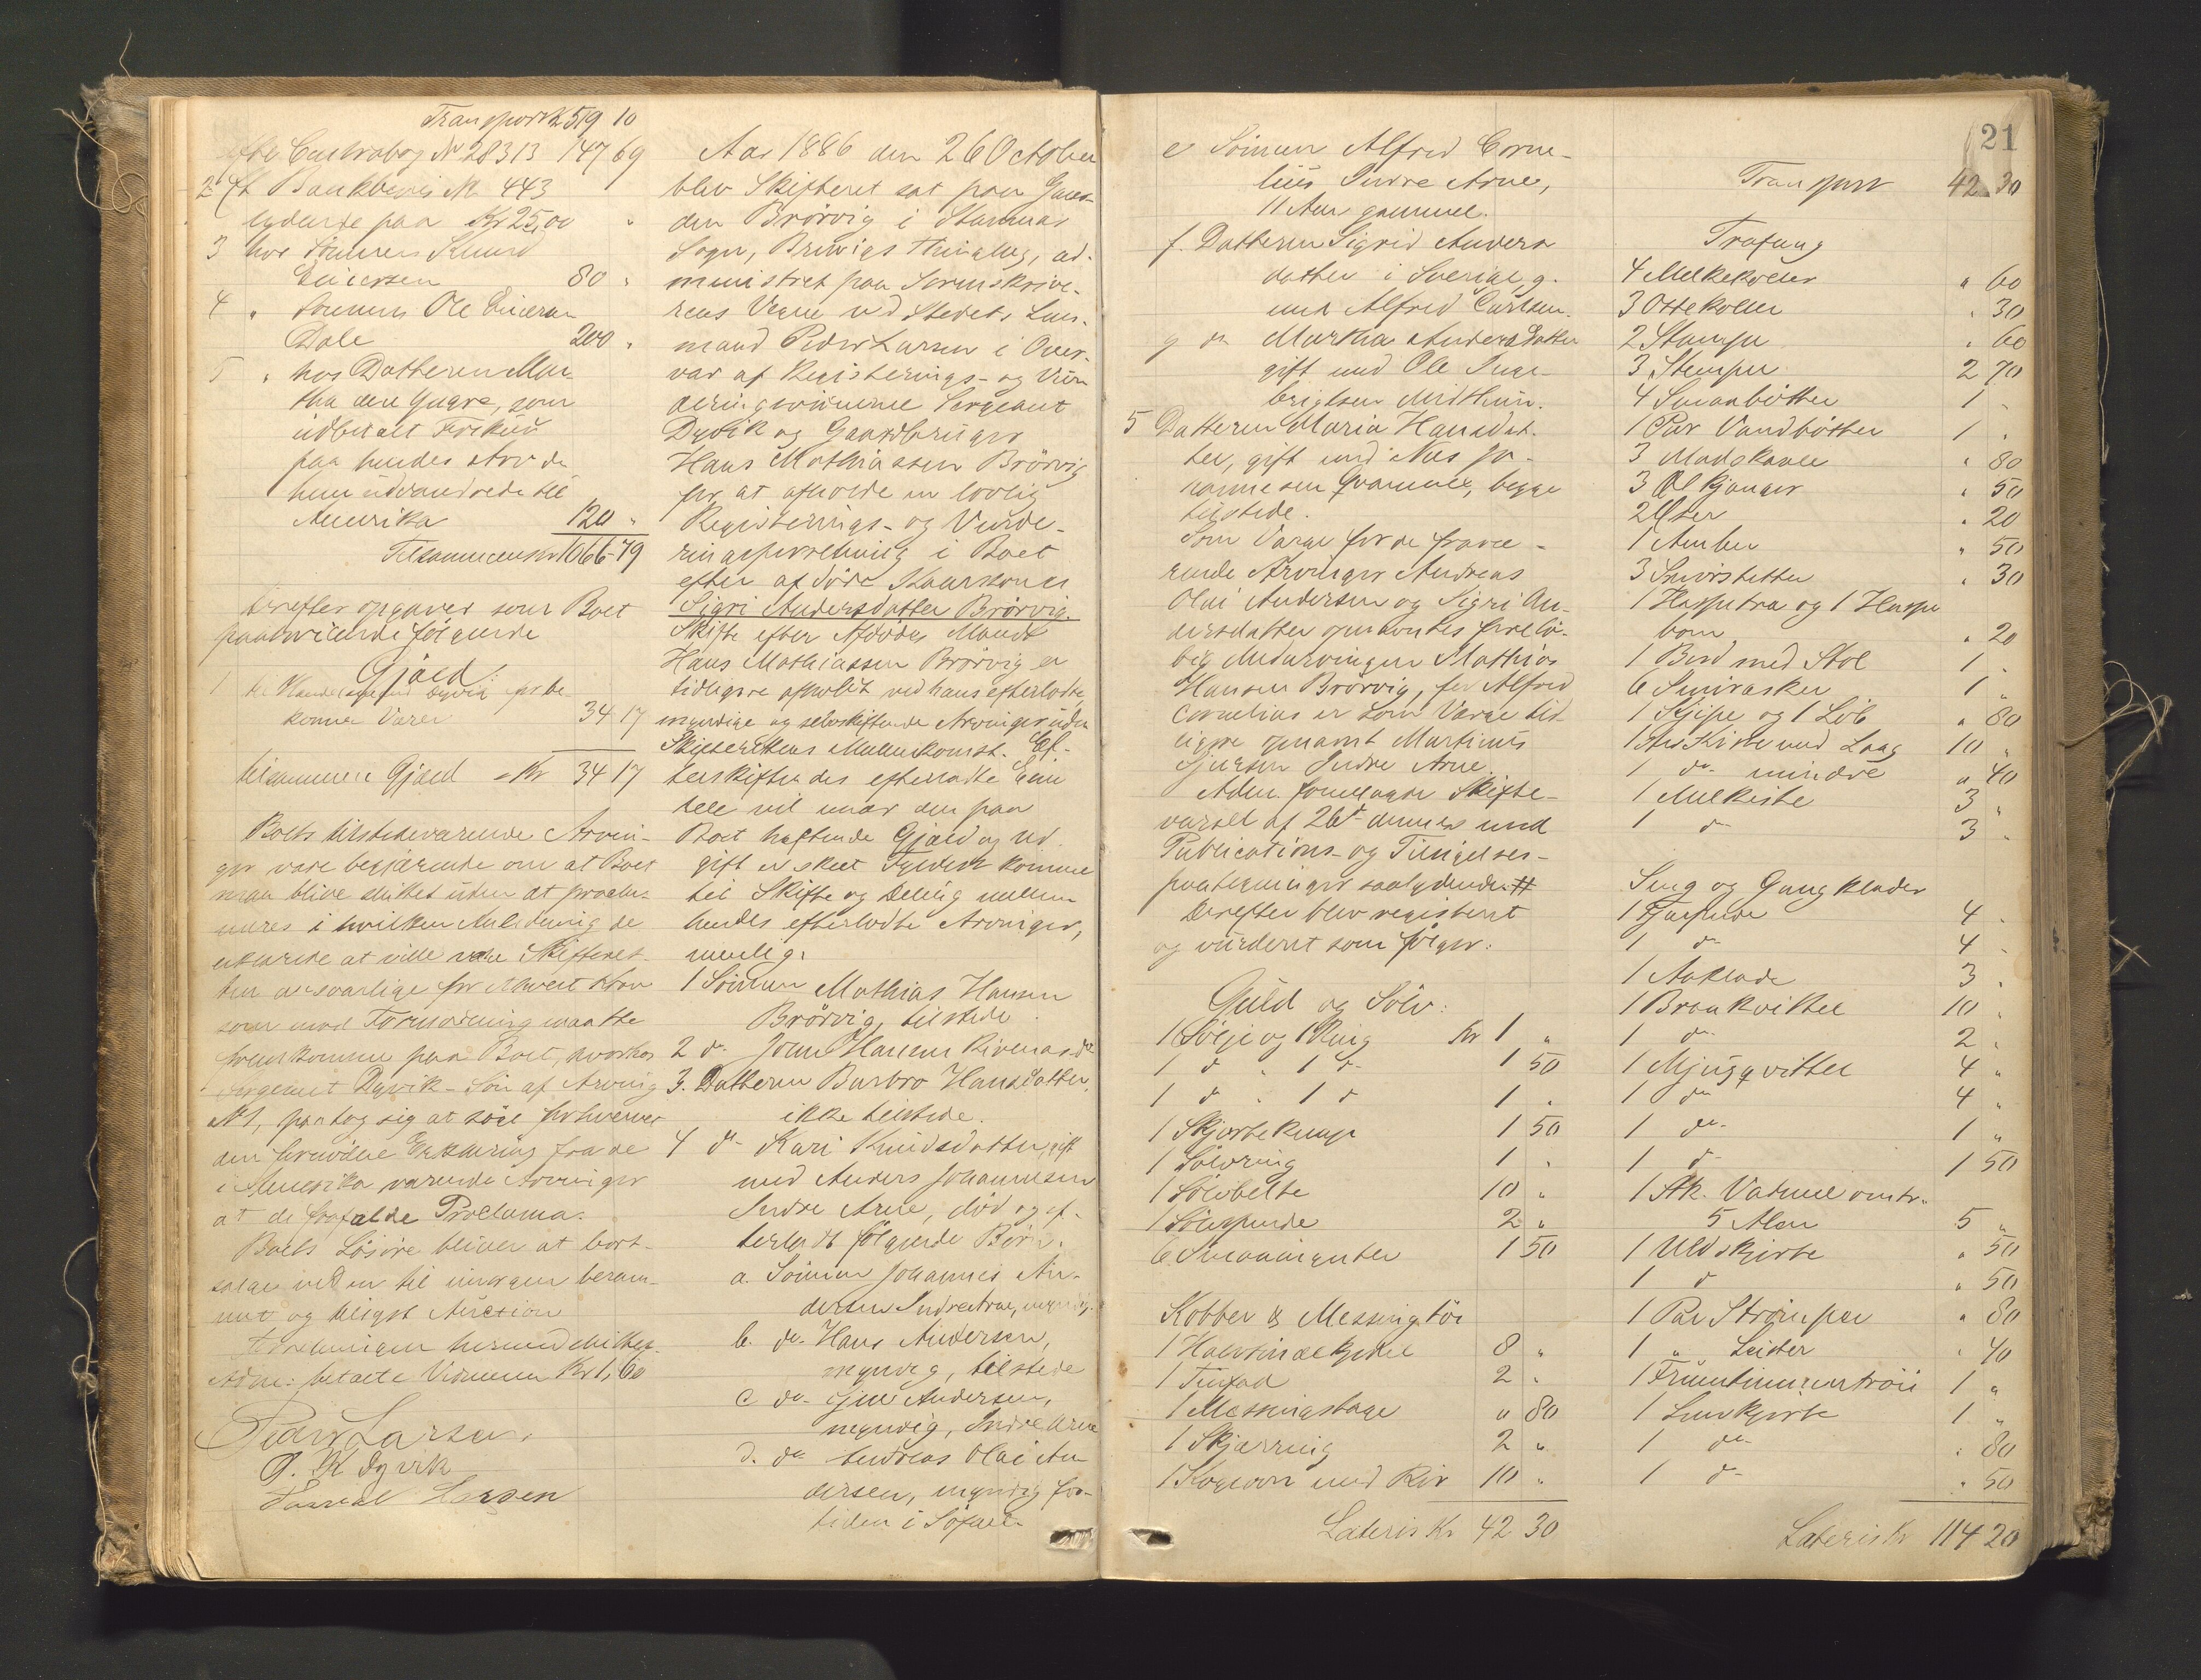 Transport 2519 10
efter Contrabog No 28313 147 69
2 ft Bankbevis No 443
lydende paa Kr 25,00 "
3 hos Sønnen Knud
Einersen 80 "
4 " Sønnen Ole Einersen
Dale 200 "
5 " hos Datteren Mar-
tha den Yngre, som
udbetalt Forskud
paa hendes Arv da
hun udvandrede til
Amerika 120 "
Tilsammen
Derefter opgaves som Boet
paahvilende følgende
Gjæld
1 til Handelsmand Dyvik for be-
komne Varer 34 17
tilsammen Gjæld Kr 34 17
Boets tilstedeværende Arvin-
ger vare begjærende om at Boet
maa blive sluttet uden at procla-
meres i hvilken Anledning de
erklærede at ville være Skifteret-
ten ansvarlige for ethvert Krav
som mod Formodning maatte
fremkomme paa Boet, hvorhos
Sergeant Dyvik - Søn af Arving
No 1, paatog sig at søge forhvervet
den fornødne Erklæring fra de
i Amerika værende Arvinger
at de frafalde Proclama.
Boets Løsøre bliver at bort-
sælge ved en til imorgen beram-
met og tillyst Auction
Forretningen hermed sluttet
Adm: betalte Vidnerne Kr 1,60
Peder Larsen.
O. K Dyvik
Larsen
Aar 1886 den 26 October
blev Skifteret sat paa Gaar-
den Brørvig i Stamnæs
Sogn, Bruvigs Thinglag, ad-
ministret paa Sorenskrive-
rens Vegne ved Stedets Lens-
mand Peder Larsen i Over-
vær af Registerings- og Vur-
deringsvidnerne Sergeant
Dyvik og Gaardbruger
Hans Mathiassen Brørvig
for at afholde en lovlig
Registerings- og Vurde-
ringsforretning i Boet
efter afdøde Kaarkone
Sigri Andersdatter Brørvig.
Skifte efter Afdødes Mand
Hans Mathiassen Brørvig er
tidligere afholdt ved hans efterladte
myndige og selvskiftende Arvinger uden
Skifterettens Mellemkomst. Ef-
terskiftendes efterladte Eien
dele vil naar den paa
Boet heftende Gjæld og Ud-
gift er skeet Fyldest komme
til Skifte og Deling mellem
hendes efterladte Arvinger,
nemlig:
1 Sønnen Mathias Hansen
Brørvig, tilstede
2 do John Hansen Rivenæs do
3. Datteren Barbro Hansdatter,
ikke tilstede.
4 do Kari Knudsdatter, gift
med Anders Johannesen
Indre Arne, død og ef-
terladt følgende Børn.
a. Sønnen Johannes An-
dersen Indre Arne, myndig.
b. do Hans Andersen,
myndig, tilstede
c do Andersen,
myndig, Indre Arne
d. do Andreas Olai An
dersen, myndig for-
tiden i Søfart
21
e Sønnen Alfred Corne-
lius Indre Arne,
11 Aar gammel.
f. Datteren Sigrid Anders
datter i Sverige, g.
med Alfred Carlsen.
g do Martha Andersdatter
gift med Ole Inge-
brigtsen Midthun.
5 Datteren Maria Hansdat-
ter, gift med Nils Jo-
hannesen Qvamme, begge
tilstede.
Som Værge for de fravæ-
rende Arvinger Andreas
Olai Andersen og Sigri An-
dersdatter opnævntes forelø-
big Medarvingen Mathias
Hansen Brørvig, for Alfred
Cornelius er som Værge tid-
ligere opnævnt Martinus
Sjursen Indre Arne.
Adm. fremlagde Skifte-
varsel af 26de dennes med
Publications- og Tilsigelses-
paategninger saalydende #
Derefter blev registeret
og vurderet som følger:
Guld og Sølv:
1 Sølje og 1 Ring Kr 1 "
1 do " 1 do 1 50
1 do " 1 do 1 "
1 Skjorteknap 1 50
1 Sølvring 1 "
1 Sølvbelte 10 "
1 Sølvspende 2 "
6 Smaamynter 1 50
Kobber & Messingtøi
1 Halvtøndekjedel 8 "
1 Tinfad 2 "
1 Messingstage " 80
1 Skjærring 2 "
1 Kogeovn med Rør 10 "
Lateris Kr 42 30
Transport 42 30
Træfang
4 Melkekoller " 60
3 Ottekoller " 30
2 Stampe " 60
3 Stamper 2 70
4 Smaabøtter 1 "
1 Par Vandbøtter 1 "
3 Madskaale " 80
3 Ølkjønger " 50
2 Øser " 20
1 Amber " 50
3 Smørstetter " 30
1 Haspetræ og 1 Haspe
bom " 20
1 Bord med Stol 1 "
6 Smørasker 1 "
1 Skjeppe og 1 Løb " 80
1 Kiste med Laag 10 "
1 do mindre " 40
1 Melkiste 3 "
1 do 3 "
Seng og Gangklæder
1 Fjærpude 4 "
1 do 4 "
1 Aaklæde 3 "
1 Brankvittel 10 "
1 do 2 "
1 Mjugqvittel 4 "
1 do 4 "
1 do 1 "
1 do 1 50
1 Stk. Vadmel omtr.
5 Alen 5 "
1 Uldskjorte " 50
1 do " 50
1 Par Strømper " 80
1 " Leister " 40
1 Fruentimmertrøie 1 "
1 Linskjorte 1 "
1 do " 80
1 do " 50
Lateris Kr 114 20